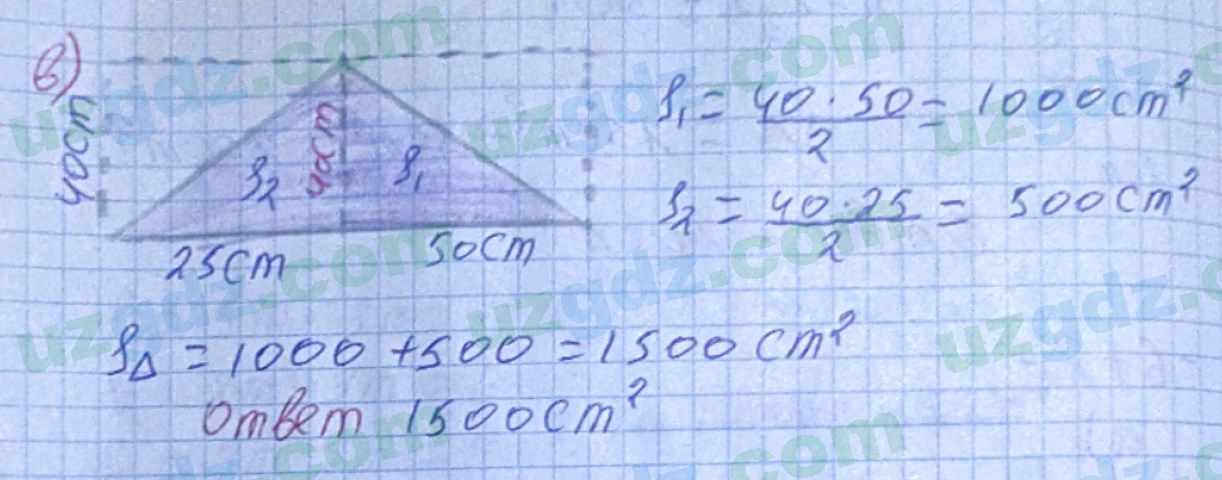 в)
40cm
40cm
S₂
S₁
25cm
50cm
S₁ = 40 · 50 / 2 = 1000 cm²
S₂ = 40 · 25 / 2 = 500 cm²
S△ = 1000 + 500 = 1500 cm²
Ответ 1500 cm²
uzgdz.com